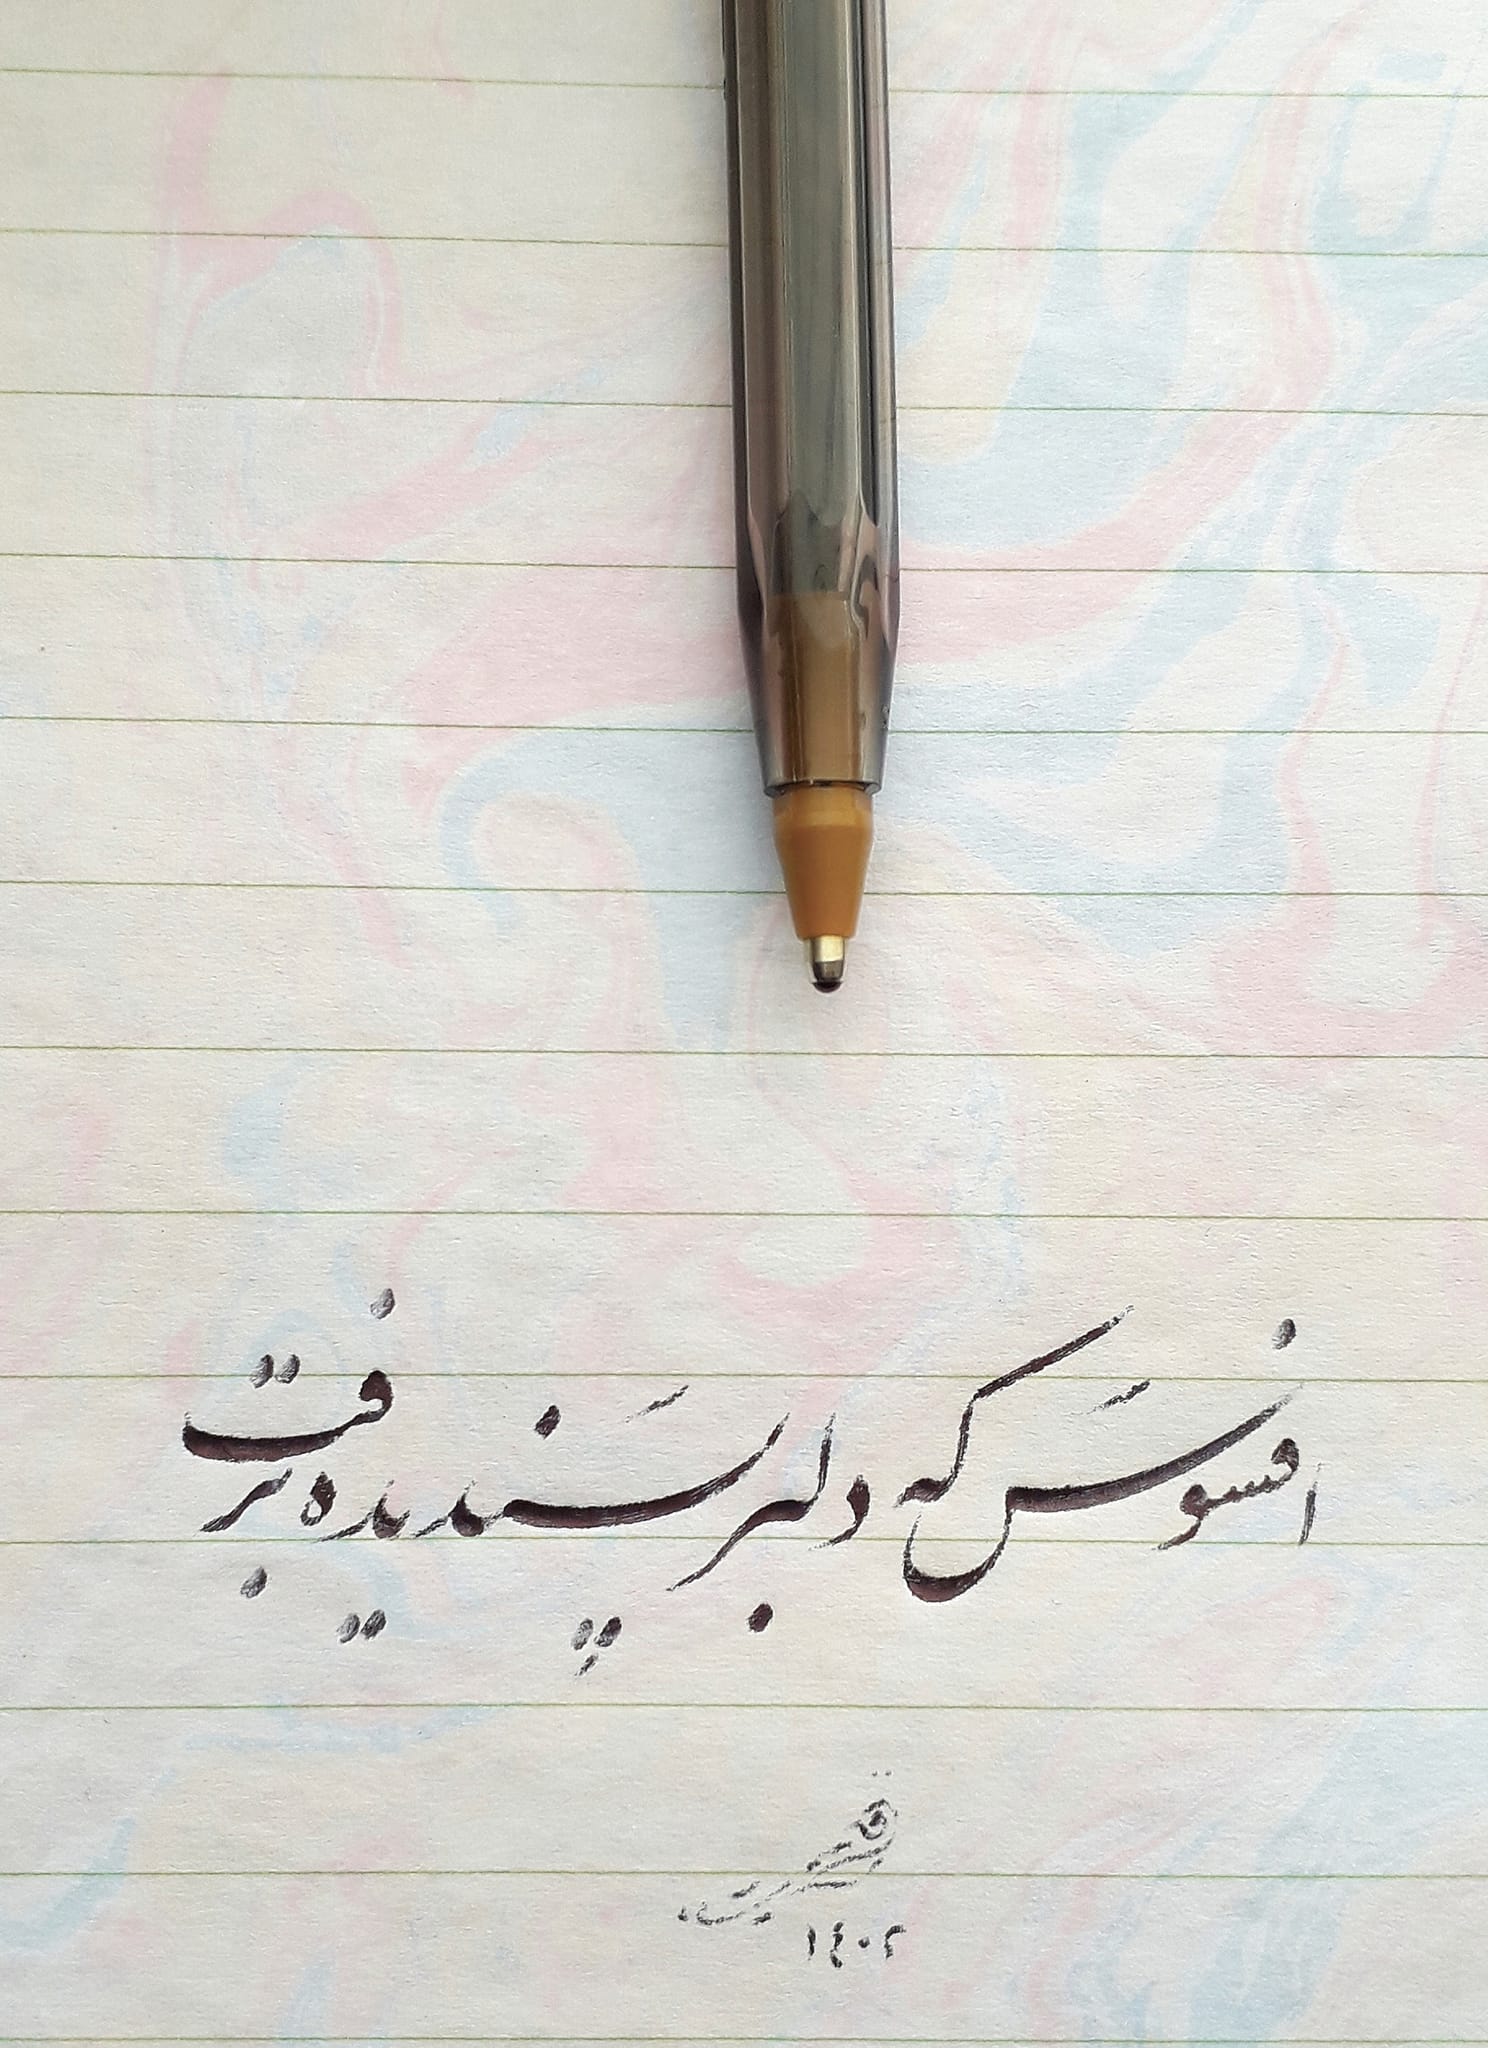 افسوس که دلبر پسندیده برفت
۱۴۰۲